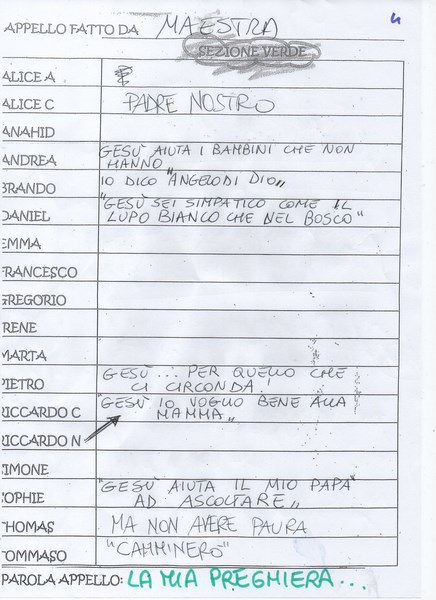 4
APPELLO FATTO DA MAESTRA
SEZIONE VERDE
ALICE A
ALICE C PADRE NOSTRO
ANAHID
ANDREA GESÙ AIUTA I BAMBINI CHE NON
HANNO
BRANDO IO DICO "ANGELO DI DIO„
DANIEL "GESÙ SEI SIMPATICO COME IL
LUPO BIANCO CHE NEL BOSCO"
EMMA
FRANCESCO
GREGORIO
IRENE
MARTA
PIETRO GESÙ... PER QUELLO CHE
CI CIRCONDA!
RICCARDO C "GESÙ IO VOGLIO BENE ALLA
MAMMA„
RICCARDO N
SIMONE
SOPHIE "GESÙ AIUTA IL MIO PAPA'
AD ASCOLTARE„
THOMAS MA NON AVERE PAURA
TOMMASO "CAMMINERÒ"
PAROLA APPELLO: LA MIA PREGHIERA...